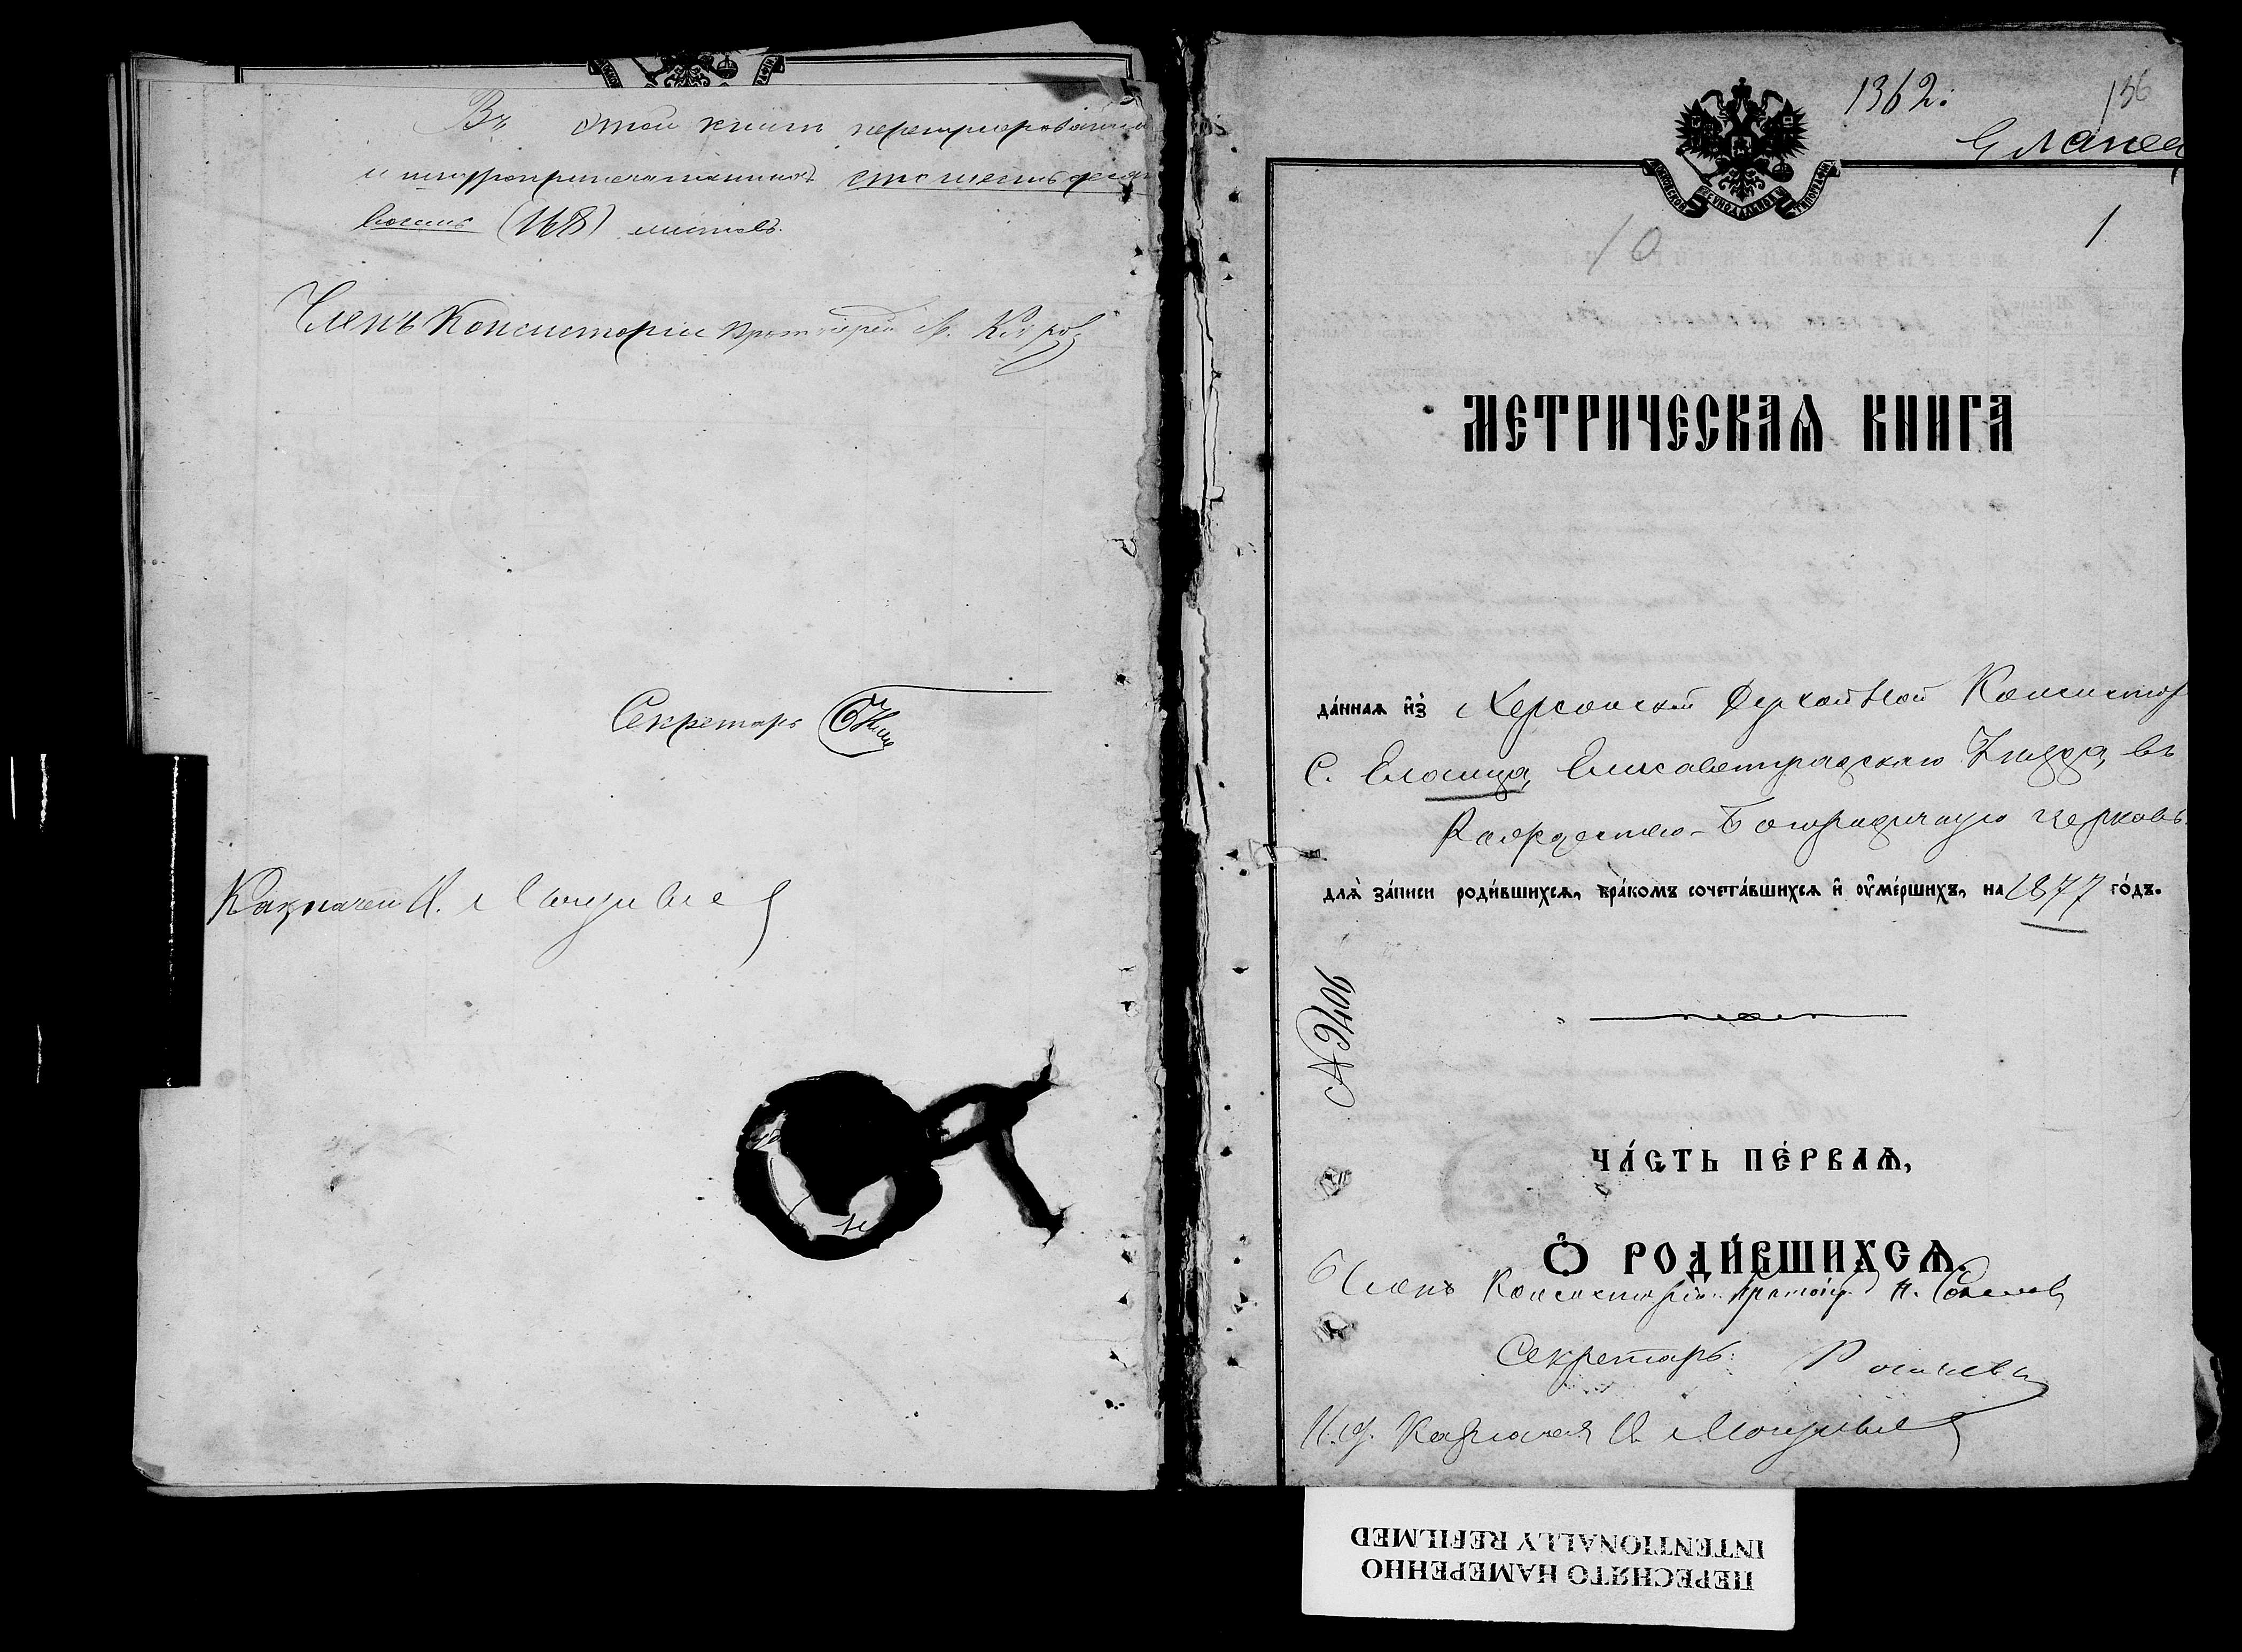 Въ этой книгѣ перенумерованныхъ
и шнуроприпечатанныхъ сто шестьдесятъ
восемь (168) листовъ.
Членъ Консисторіи протоіерей
Секретарь
Казначей И.
1362.
136
Еланец
МОСКОВСКОЙ СѴНОДАЛЬНОЙ ТИПОГРАФІИ
10
1
МЕТРИЧЕСКАѦ КНИГА
да́ннаѧ и҆з̾ Херсонской Духовной Консистор
С. Еланца, Елисаветградскаго Уѣзда, въ
Рождество-Богородичную церковь.
длѧ̀ за́писи роди́вшихсѧ, бра́комъ сочета́вшихсѧ и҆ ᲂу҆ме́ршихъ, на 1877 го́дъ.
№ 9406
ЧА́СТЬ ПЕ́РВАѦ,
Ѽ РОДИ́ВШИХСѦ.
Членъ Консисторіи протоіер. Н.
Секретарь
И. д. Казначея И.
ПЕРЕСНЯТО НАМЕРЕННО
INTENTIONALLY REFILMED